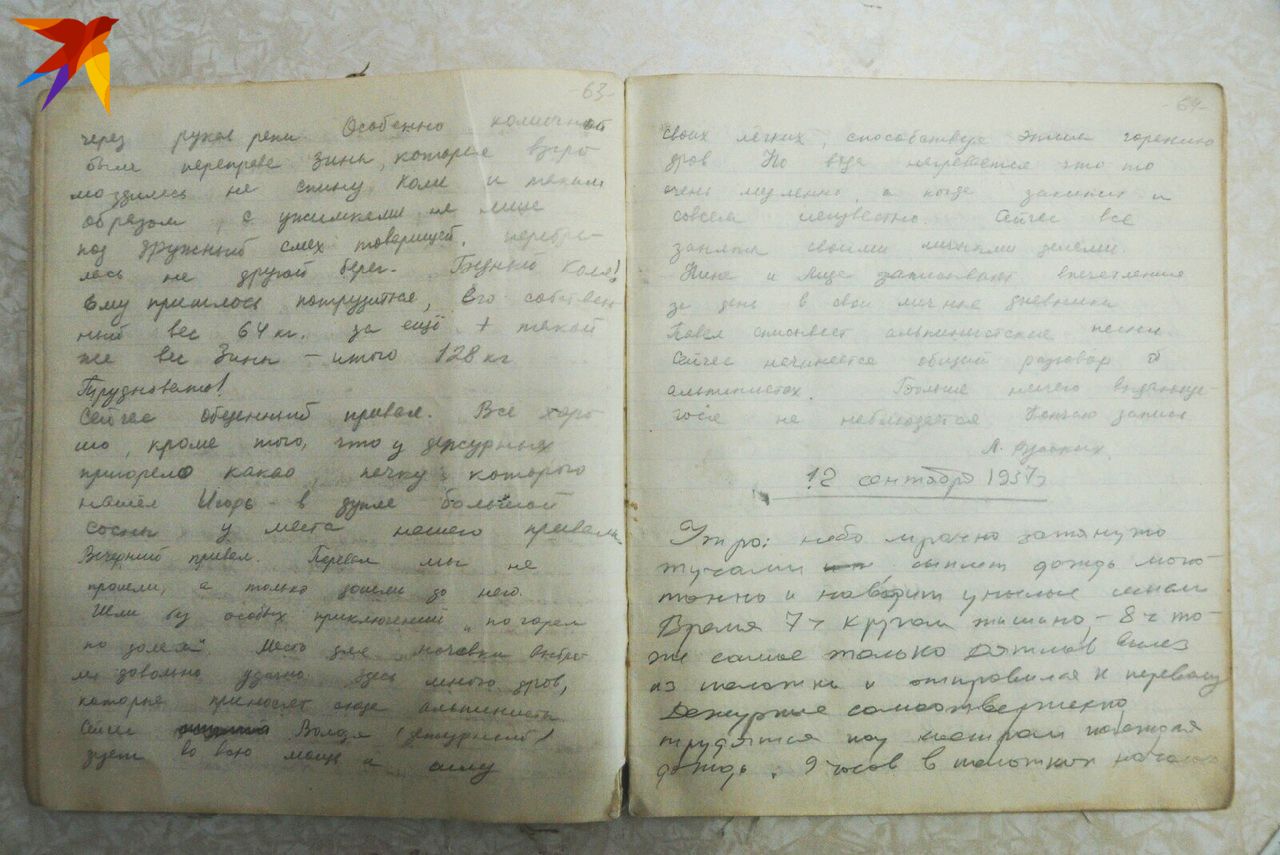 -63-
через рукав реки Особенно комичной
была переправа Зины, которая взгро
моздилась на спину Коли и таким
образом, с ужимками на лице
под дружный смех товарищей, перебра-
лась на другой берег. Бедный Коля!
Ему пришлось потрудится, его собствен
ный вес 64 кг. да ещё + такой
же вес Зины – итого 128 кг
Трудновато!
Сейчас обеденный привал. Все хоро
шо, кроме того, что у дежурных
пригорело какао, печку которого
нашёл Игорь – в дупле большой
сосны у места нашего привала.
Вечерний привал. Перевал мы не
прошли, а только дошли до него.
Шли без особых приключений „по горам
по долам". Место для ночевки выбра
ли довольно удачно здесь много дров,
которые приносят сюда альпинисты
Сейчас Володя (дежурный)
дует во всю мощь и силу
-64-
своих легких, способствуя этим горению
дров Но вода нагревается что то
очень медленно, а когда закипит и
совсем неизвестно. Сейчас все
заняты своими личными делами
Нина и Люда записывают впечатления
за день в свои личные дневники
Павел списывает альпинистские песни.
Сейчас начинается общий разговор об
альпинистах. Больше ничего выдающе-
гося не наблюдается Кончаю записи
12 сентября 1957г
Утро: небо мрачно затянуто
тучами сыплет дождь моно
тонно и наводит унылые мысли
Время 7 ч кругом тишина – 8 ч то-
же самое только Дятлов вылез
из палатки и отправился к перевалу
Дежурные самоотверженно
трудятся над костром
дождь. 9 часов в палатках начало